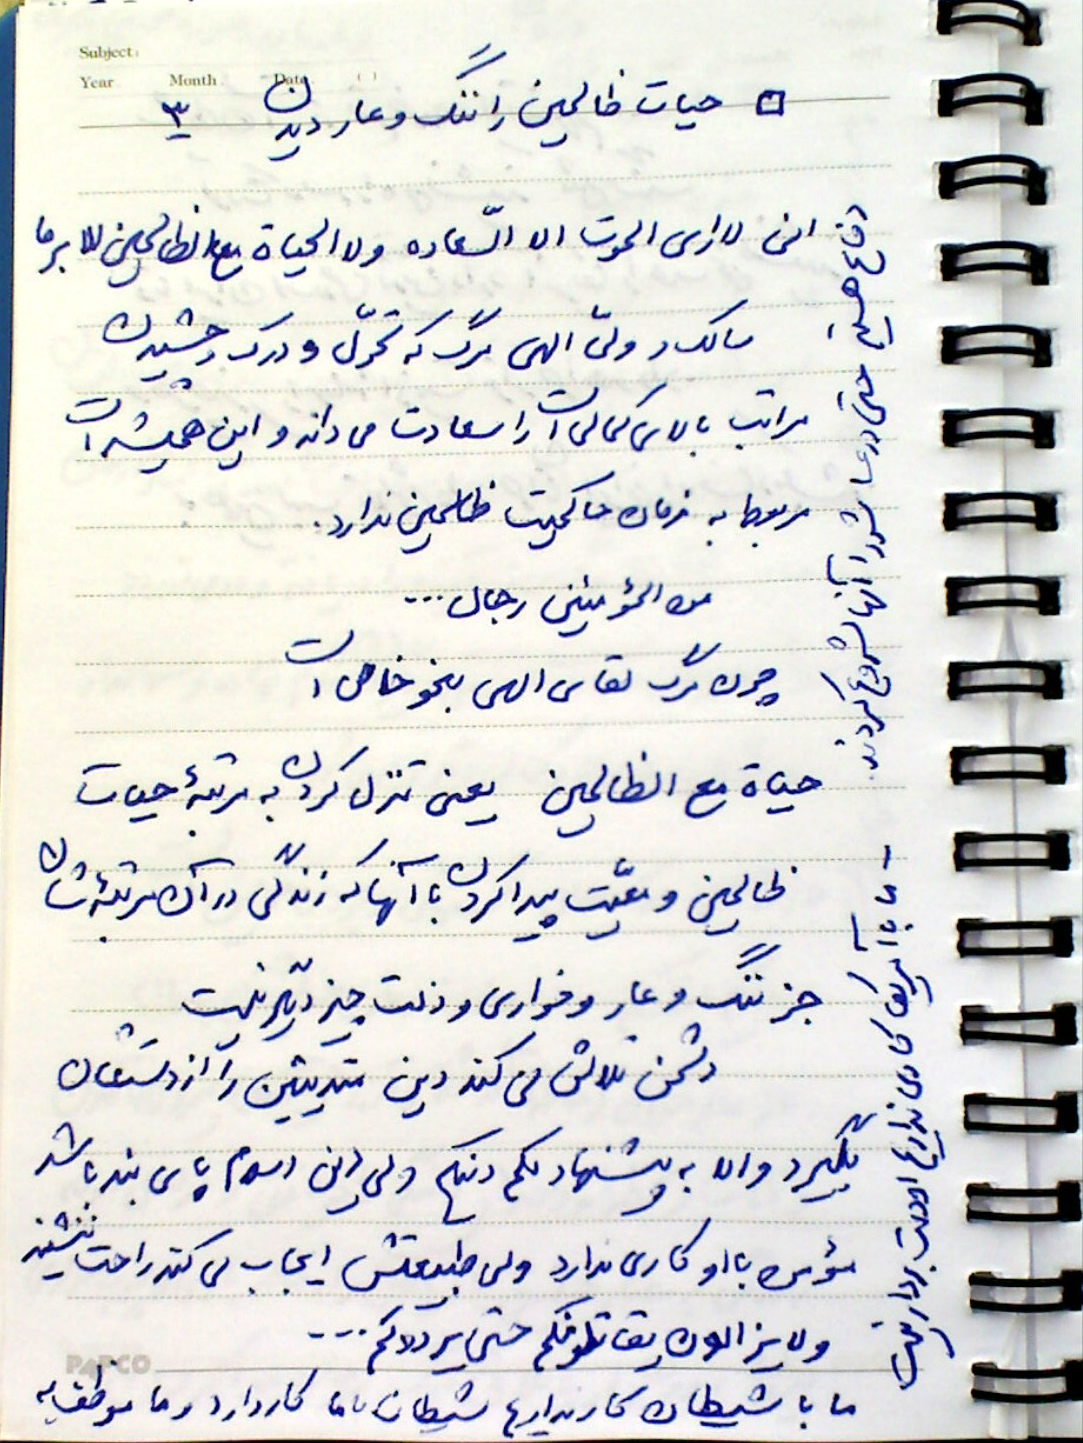 Subject:
Year Month Date ( )
□ حیات ظالمین را ننگ و عار دیدن ۳
انی لا اری الموت الا السّعاده و لا الحیاة مع الظالمین الا برما
سالک و ولیّ الهی مرگ که تحوّل و درک و چشیدن
مراتب بالای کمالی است را سعادت می داند و این همیشه است
مربوط به زمان حاکمیت ظالمین ندارد.
من المؤمنین رجال ...
چون مرگ لقای الهی بنحو خاص است
حیاة مع الظالمین یعنی تنزل کردن به مرتبهٔ حیات
ظالمین و معیّت پیدا کردن با آنها که زندگی در آن مرتبهٔ شان
جز ننگ و عار و خواری و ذلت چیز دیگر نیست
دشمن تلاش می کند دین متدینین را از دستشان
بگیرد والا به پیشنهاد لکم دینکم ولی دین اسلام پای بند باشد
مؤمن با او کاری ندارد ولی طبیعتش ایجاب می کند راحت ننشیند
ولا یزالون یقاتلونکم حتی یردوکم ....
ما با شیطان کار نداریم شیطان با ما کار دارد و ما موظف به
دفاع هستیم، حتی در عاشورا آنها شروع کردند.
- ما با آمریکا کاری نداریم او دست بردار نیست
PAPCO